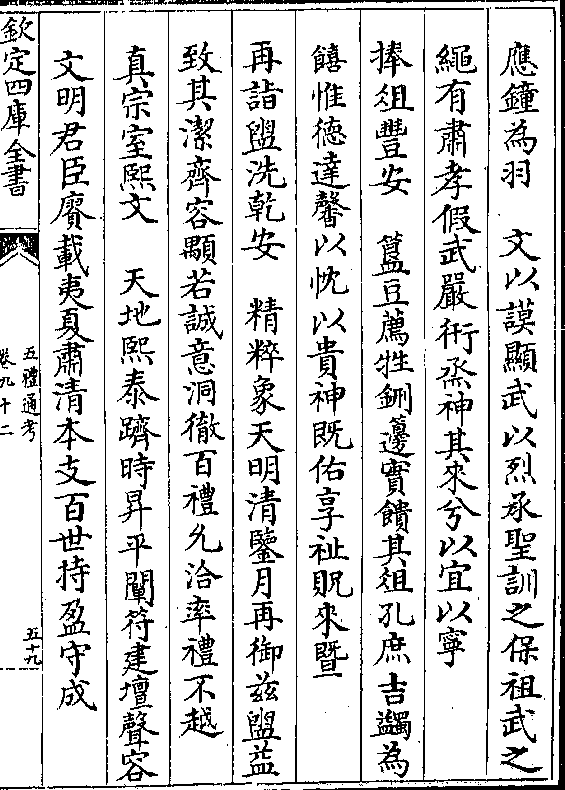 應鐘為羽　文以謨顯武以烈承聖訓之保祖武之
繩有肅孝假武嚴術烝神其來兮以宜以寧
捧俎豐安　簋豆薦牲鉶籩實饋其俎孔庶吉蠲為
饎惟德達馨以忱以貴神既佑享祉貺來暨
再詣盥洗乾安　精粹象天明清鑒月再御兹盥益
致其潔齊容顒若誠意洞徹百禮允洽率禮不越
真宗室熙文　天地熙泰躋時昇平闡符建壇聲容
文明君臣賡載夷夏肅清本支百世持盈守成
欽定四庫全書
五禮通考
卷九十二
五十九